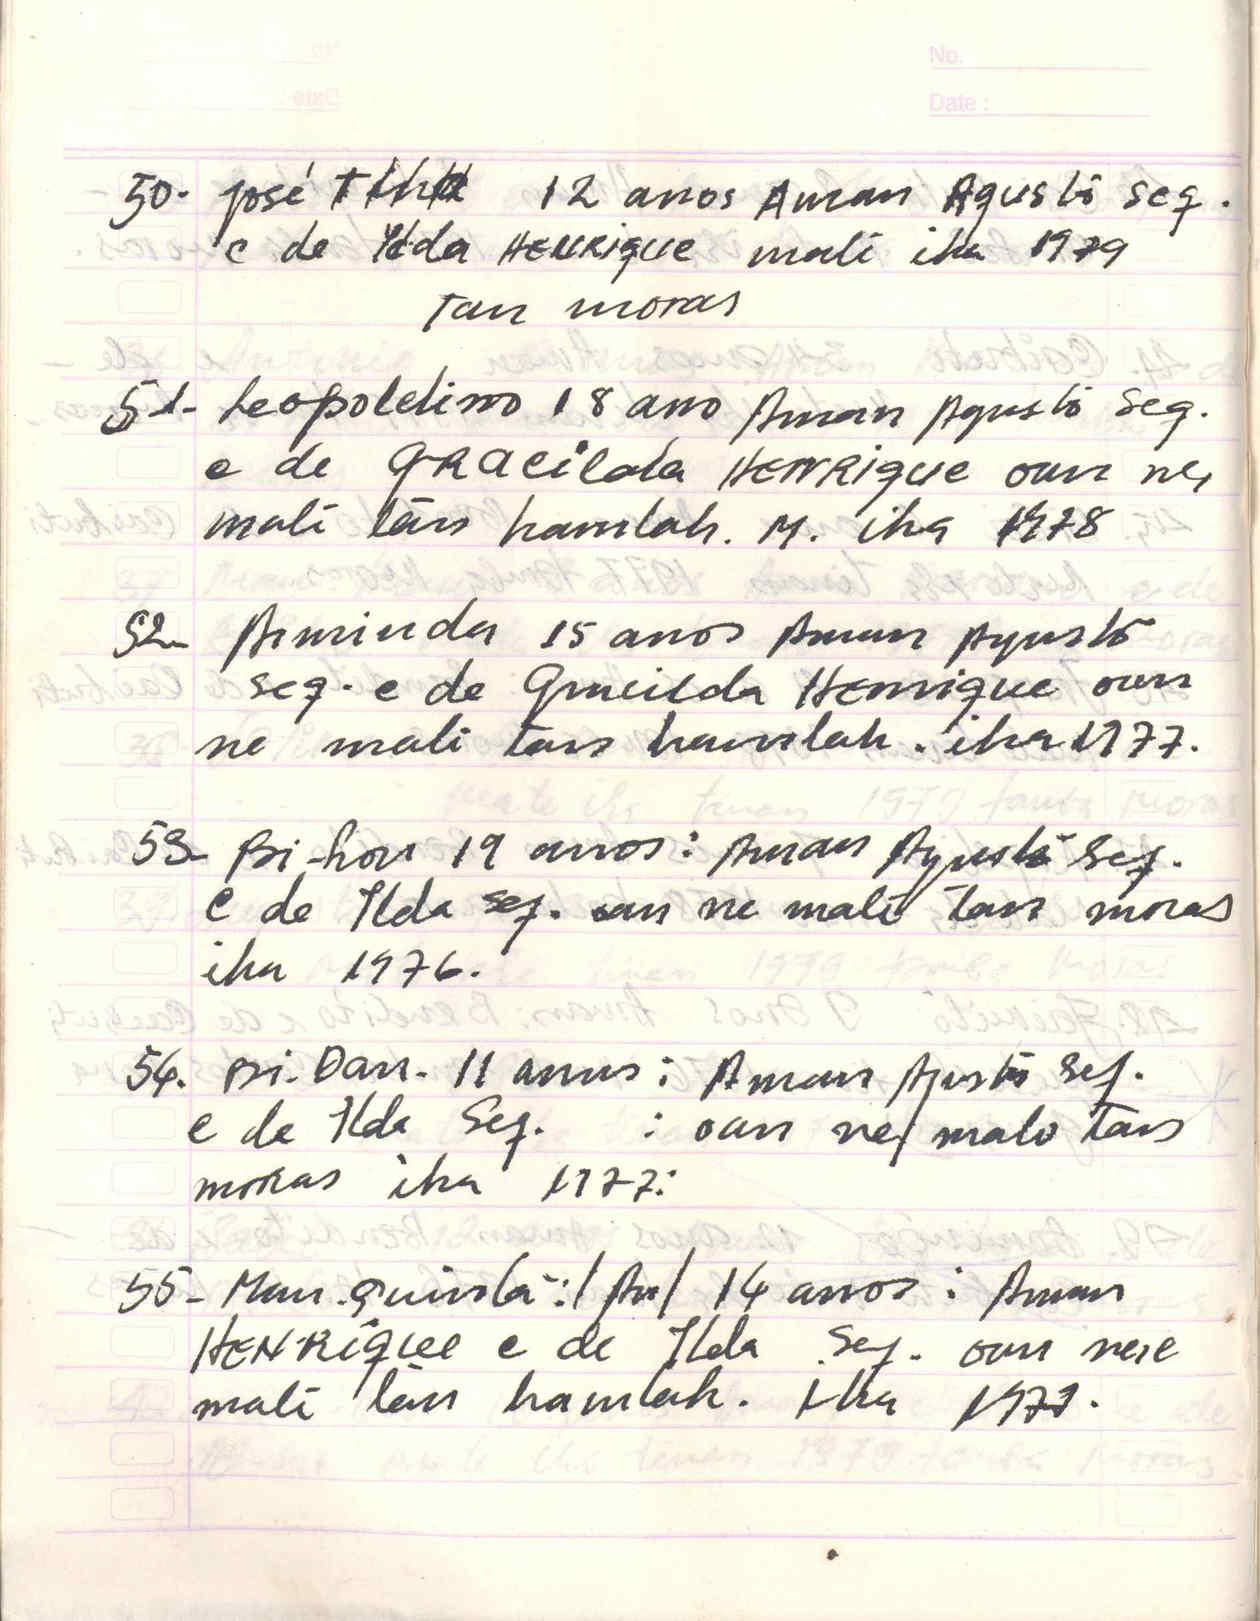 No.
Date :
50. José 12 anos Aman Agustô seq.
e de Ilda HENRique mati iha 1979
Tan moras
51- Leopoldino 18 ano Aman Agustô Seq.
e de GRACilda HENRique oan ne,
mati tan hamlah. M. iha 1978
52- Arminda 15 anos Aman Agustô
seq. e de Gracilda HEnrique oan
ne mati tan hamlah. iha 1977.
53- Bi-hou 19 anos: Aman Agustô Seq.
e de Ilda seq. oan ne mati tan moras
iha 1976.
54. Bi-Dan. 11 anus: Aman Agustô Seq.
e de Ilda Seq. : oan ne/ mate tan
moras iha 1977:
55- Mau. Quinta:/An/ 14 anos: Aman
HENRique e de Ilda Seq. oan neie
mati tan hamlah. iha 1977.